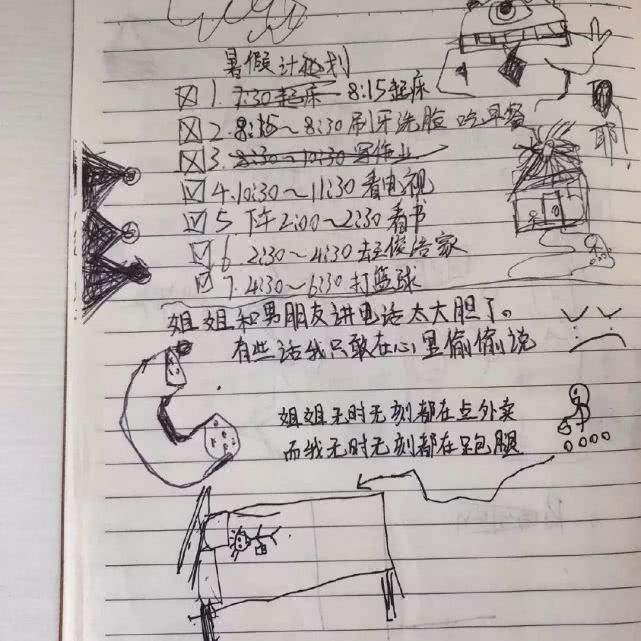 暑假计划
耶
☒ 1. 7:30起床 8:15起床
☒ 2. 8:15～8:30刷牙洗脸 吃早餐
☒ 3. 8:30～10:30写作业
☑ 4. 10:30～11:30看电视
☑ 5 下午2:00～2:30看书
☑ 6. 2:30～4:30去王俊浩家
☑ 7. 4:30～6:30打篮球
姐姐和男朋友讲电话太大胆了。
有些话我只敢在心里偷偷说
姐姐无时无刻都在点外卖
而我无时无刻都在跑腿